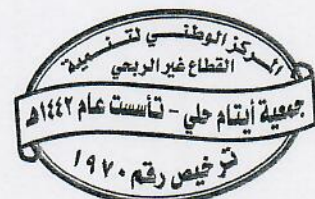 المركز الوطني لتنمية
القطاع غير الربحي
جمعية أيتام حلي - تأسست عام ١٤٤٢هـ
ترخيص رقم ١٩٧٠